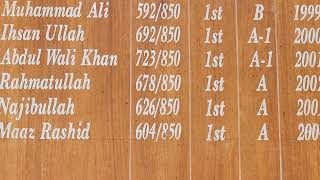 Muhammad Ali 592/850 1st B 1999
Ihsan Ullah 692/850 1st A-1 2000
Abdul Wali Khan 723/850 1st A-1 2001
Rahmatullah 678/850 1st A 200
Najibullah 626/850 1st A 200
Maaz Rashid 604/850 1st A 200